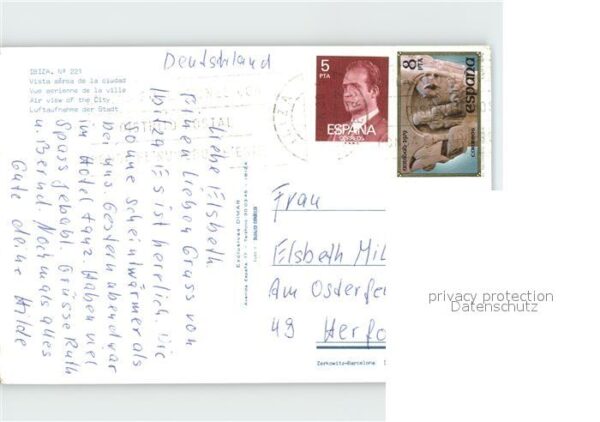 IBIZA, Nº 221
Vista aérea de la ciudad
Vue aerienne de la ville
Air view of the City
Luftaufnahme der Stadt
Deutschland
5
PTA
ESPAÑA
CORREOS
8
PTA
españa
CORREOS
Liebe Elsbeth.
Einen lieben Gruss von
Ibiza. Es ist herrlich. Die
Sonne scheint wärmer als
bei uns. Gestern abend war
im Hotel Tanz. Haben viel
Spass gehabt. Grüsse Ruth
u. Bernd. Nochmals alles
Gute deine Hilde
Exclusivas DIMAR
Frau
Elsbeth Mil
Am Osterfe
49 Herfo
Zerkowitz-Barcelona
privacy protection
Datenschutz